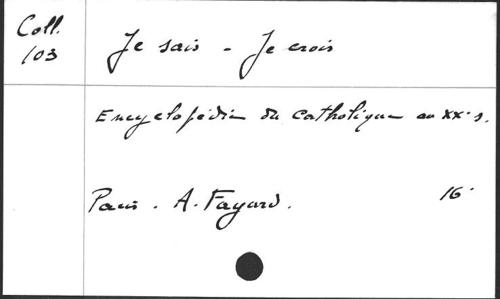 Coll.
103
Je sais - Je crois
Encyclopédie du catholique au XXe s.
Paris. A. Fayard. 16°